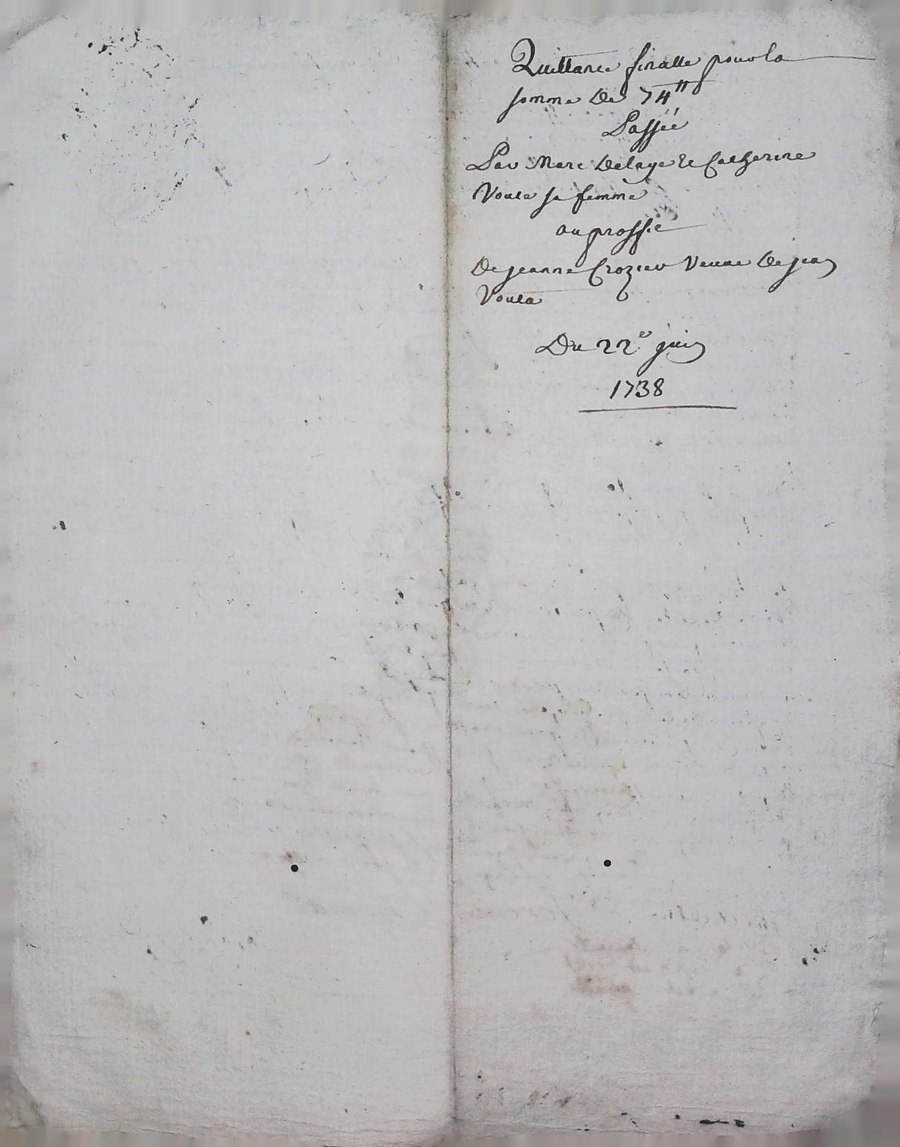 Quittance finalle pour la
somme de 74tt
Passée
Par Marc Delaye et Catherine
Vouta sa femme
au proffic
De jeanne Crozier Veuve De jean
Vouta
Du 22e juin
1738